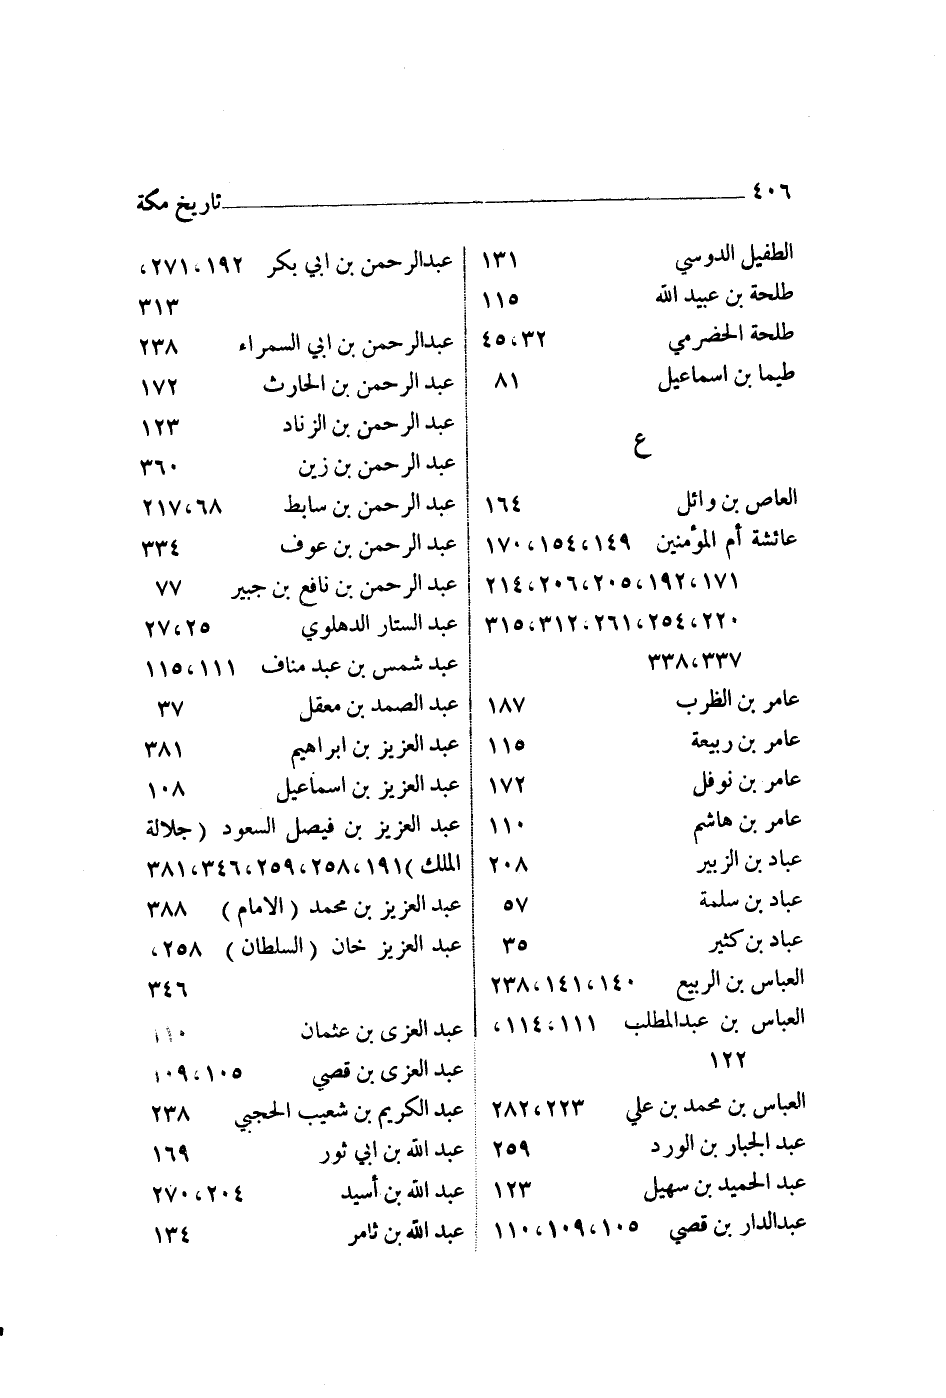 ٤٠٦ تاريخ مكة
الطفيل الدوسي ١٣١
طلحة بن عبيد الله ١١٥
طلحة الحضرمي ٤٥،٣٢
طيما بن اسماعيل ٨١
ع
العاص بن وائل ١٦٤
عائشة أم المؤمنين ١٧٠،١٥٤،١٤٩
٢١٤،٢٠٦،٢٠٥،١٩٢،١٧١
٣١٥،٣١٢،٢٦١،٢٥٤،٢٢٠
٣٣٨،٣٣٧
عامر بن الظرب ١٨٧
عامر بن ربيعة ١١٥
عامر بن نوفل ١٧٢
عامر بن هاشم ١١٠
عباد بن الزبير ٢٠٨
عباد بن سلمة ٥٧
عباد بن كثير ٣٥
العباس بن الربيع ٢٣٨،١٤١،١٤٠
العباس بن عبدالمطلب ١١٤،١١١،
١٢٢
العباس بن محمد بن علي ٢٨٢،٢٢٣
عبد الجبار بن الورد ٢٥٩
عبد الحميد بن سهيل ١٢٣
عبدالدار بن قصي ١١٠،١٠٩،١٠٥
عبدالرحمن بن ابي بكر ٢٧١،١٩٢،
٣١٣
عبدالرحمن بن ابي السمراء ٢٣٨
عبد الرحمن بن الحارث ١٧٢
عبد الرحمن بن الزناد ١٢٣
عبد الرحمن بن زين ٣٦٠
عبد الرحمن بن سابط ٢١٧،٦٨
عبد الرحمن بن عوف ٣٣٤
عبد الرحمن بن نافع بن جبير ٧٧
عبد الستار الدهلوي ٢٧،٢٥
عبد شمس بن عبد مناف ١١٥،١١١
عبد الصمد بن معقل ٣٧
عبد العزيز بن ابراهيم ٣٨١
عبد العزيز بن اسماعيل ١٠٨
عبد العزيز بن فيصل السعود (جلالة
الملك) ٣٨١،٣٤٦،٢٥٩،٢٥٨،١٩١
عبد العزيز بن محمد (الامام) ٣٨٨
عبد العزيز خان (السلطان) ٢٥٨،
٣٤٦
عبد العزى بن عثمان ١١٠
عبد العزى بن قصي ١٠٩،١٠٥
عبد الكريم بن شعيب الحجبي ٢٣٨
عبد الله بن ابي ثور ١٦٩
عبد الله بن أسيد ٢٧٠،٢٠٤
عبد الله بن ثامر ١٣٤